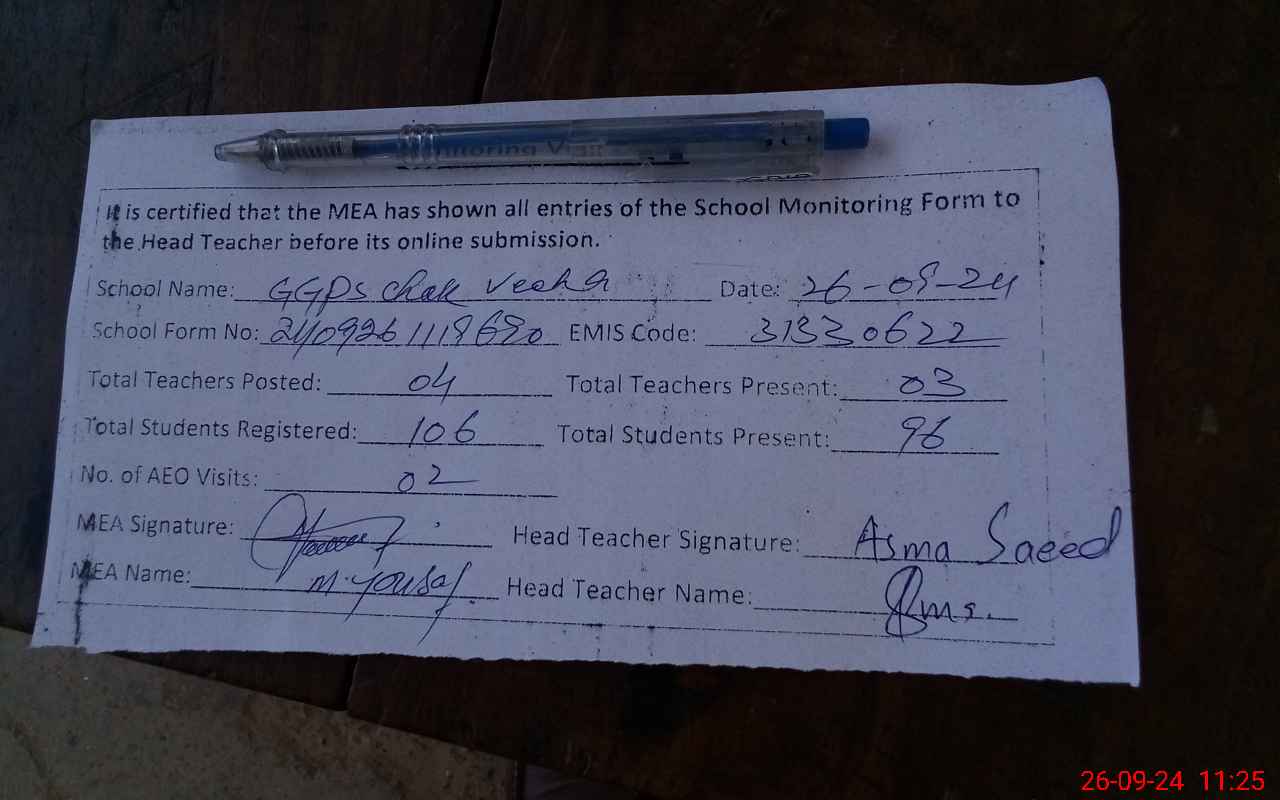 Monitoring Visit
It is certified that the MEA has shown all entries of the School Monitoring Form to
the Head Teacher before its online submission.
School Name: GGPS Chak Veeha Date: 26-09-24
School Form No: 240926111'9680 EMIS Code: 31330622
Total Teachers Posted: 04 Total Teachers Present: 03
Total Students Registered: 106 Total Students Present: 96
No. of AEO Visits: 02
MEA Signature: Head Teacher Signature: Asma Saeed
MEA Name: M.Yousaf Head Teacher Name:
26-09-24 11:25